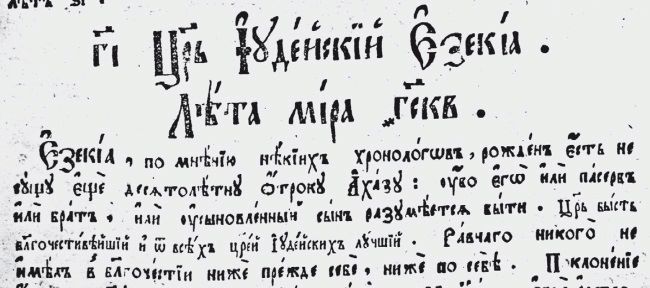 г҃і Цр҃ь Іꙋдейскїй Єзекїа .
Лѣта міра ҂гс҃кв .
Єзекїа , по мнѣнїю нѣкїихъ хронологѡвъ , рожденъ єсть не
сꙋщꙋ єще десѧтолѣтнꙋ ѻтрокꙋ Ахазꙋ : ꙋбо єгѡ или пасербъ
или братъ , или ѹсыновленный сынъ разꙋмѣетсѧ быти . Цр҃ь бысть
бл҃гочестивѣйшїй и ѿ всѣхъ цр҃ей Іꙋдейскихъ лꙋчшїй . Равнаго никого не
имѣлъ в бл҃гочестїи ниже прежде себе , ниже по себѣ . Поклоненїе